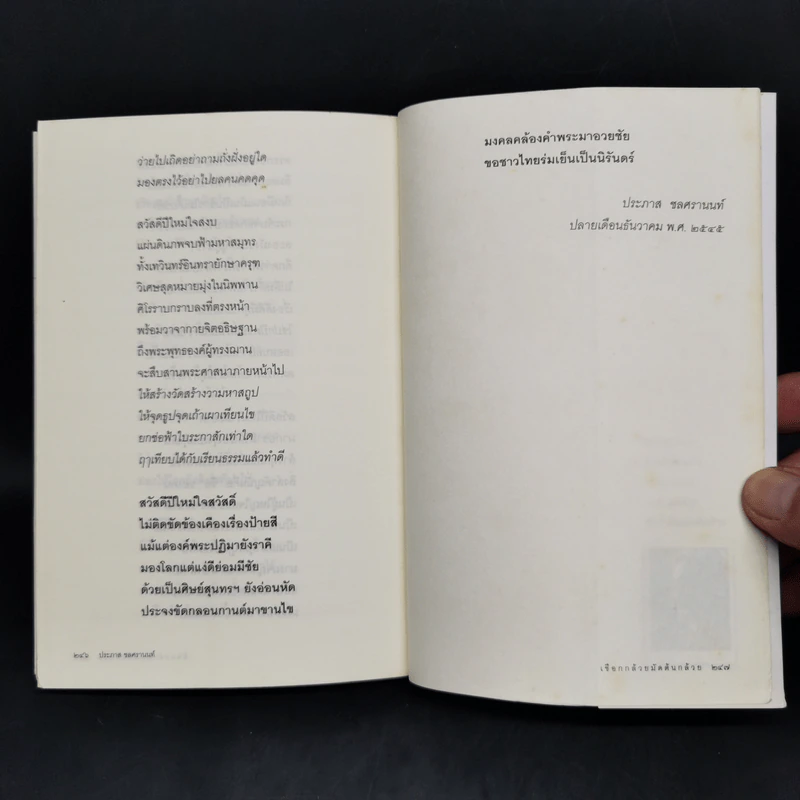 ว่ายไปเถิดอย่าถามถึงฝั่งอยู่ใด
มองตรงไว้อย่าไปยลคนคตคุด
สวัสดีปีใหม่ใจสงบ
แผ่นดินภพจบฟ้ามหาสมุทร
ทั้งเทวินทร์อินทรายักษาครุฑ
วิเศษสุดหมายมุ่งในนิพพาน
ศิโรราบกราบลงที่ตรงหน้า
พร้อมวาจากายจิตอธิษฐาน
ถึงพระพุทธองค์ผู้ทรงฌาน
จะสืบสานพระศาสนาภายหน้าไป
ให้สร้างวัดสร้างวามหาสถูป
ให้จุดธูปจุดเถ้าเผาเทียนไข
ยกช่อฟ้าใบระกาสักเท่าใด
ฤๅเทียบได้กับเรียนธรรมแล้วทำดี
สวัสดีปีใหม่ใจสวัสดิ์
ไม่ติดขัดข้องเคืองเรื่องป้ายสี
แม้แต่องค์พระปฏิมายังราคี
มองโลกแต่แง่ดีย่อมมีชัย
ด้วยเป็นศิษย์สุนทรฯ ยังอ่อนหัด
ประจงขัดกลอนกานต์มาขานไข
๒๔๖ ประภาส ชลศรานนท์
มงคลคล้องคำพระมาอวยชัย
ขอชาวไทยร่มเย็นเป็นนิรันดร์
ประภาส ชลศรานนท์
ปลายเดือนธันวาคม พ.ศ. ๒๕๔๕
เชือกกล้วยมัดต้นกล้วย ๒๔๗